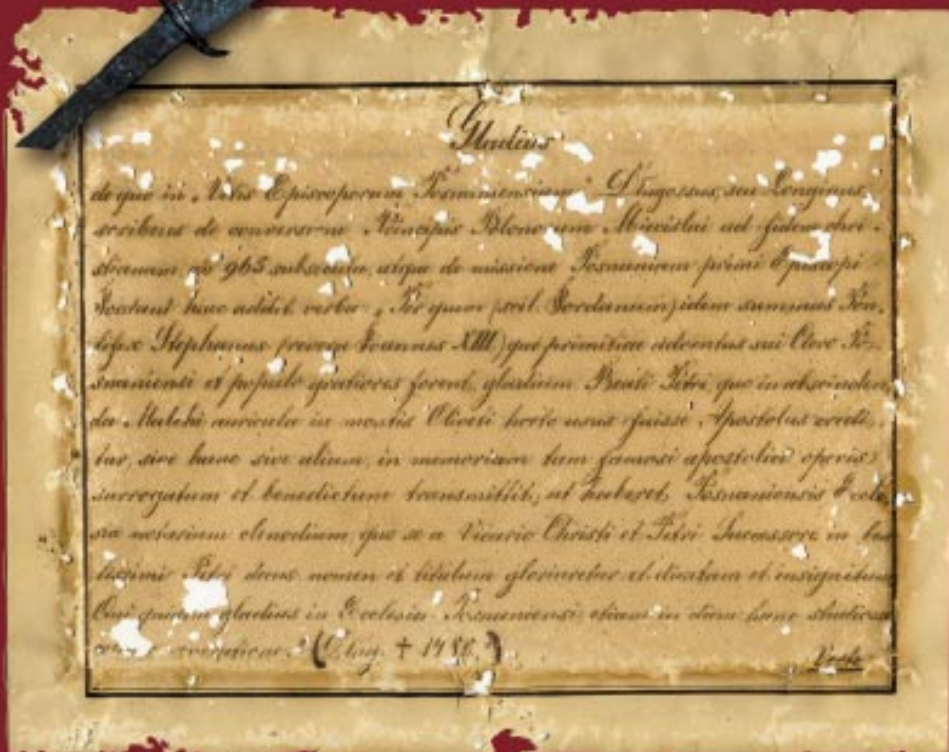 Gladius
de quo in „Vitis Episcoporum Posnaniensium" Dlugossus, seu Longinus,
scribens de conversione Principis Polonorum Miecislai ad fidem chri-
stianam, 965 subsecuta, atque de missione Posnaniam primi Episcopi
Jordani hunc addit verba „Per quem (scil. Jordanum) idem summus Pon-
tifex Stephanus Joannes XIII) quo primitiae adventus sui Clero Po-
snaniensi et populo gratiores forent, gladium Beati Petri, quo in abscinden-
da Malchi auricula in montis Oliveti horto usus fuisse Apostolus credi-
tur, sive hunc sive alium, in memoriam tam famosi apostolici operis
surrogatum et benedictum transmittit, ut haberet Posnaniensis Eccle-
sia notarium clenodium, quo se a Vicario Christi et Petri Successore in bea
tissimi Petri decus nomen et titulum gloriaretur et dicatam et insignitam
Qui quidem gladius in Ecclesia Posnaniensi etiam in diem hunc
veneratione." (Dług. † 1480.)
Verte